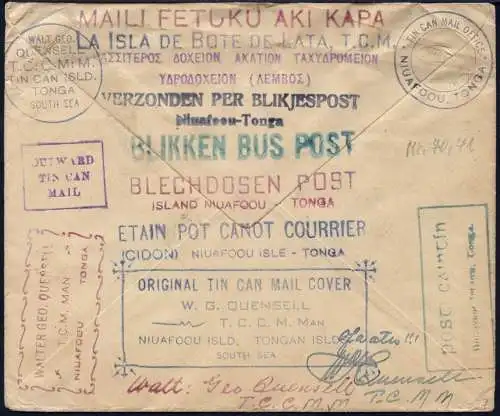 MAILI FETUKU AKI KAPA
LA ISLA DE BOTE DE LATA, T.C.M.
ΚΑΣΣΙΤΕΡΟΣ ΔΟΧΕΙΟΝ ΑΚΑΤΙΟΝ ΤΑΧΥΔΡΟΜΕΙΟΝ
ΥΔΡΟΔΟΧΕΙΟΝ (ΛΕΜΒΟΣ)
VERZONDEN PER BLIKJESPOST
Niuafoou-Tonga
BLIKKEN BUS POST
BLECHDOSEN POST
ISLAND NIUAFOOU - TONGA
ETAIN POT CANOT COURRIER
(CIDON) NIUAFOOU ISLE - TONGA
WALT. GEO.
QUENSELL
T.C.C.M.M.
TIN CAN ISLD.
TONGA
SOUTH SEA
TIN CAN MAIL OFFICE
NIUAFOOU, TONGA
OUTWARD
TIN CAN
MAIL
WALTER GEO. QUENSELL
T.C.M. MAN
NIUAFOOU TONGA
ORIGINAL TIN CAN MAIL COVER
W. G. QUENSELL
T. C. C. M. MAN
NIUAFOOU ISLD. TONGAN ISLD.
SOUTH SEA
Walt: Geo Quensell
T.C.C.M.M.
Quensell
T.C.M.M